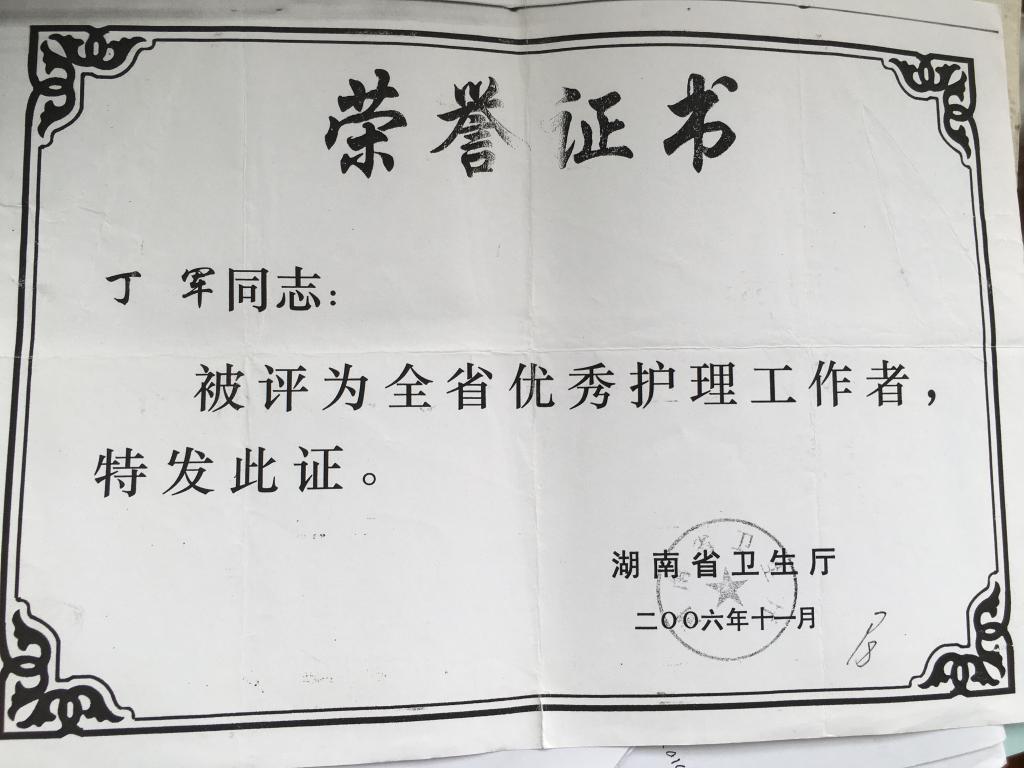 荣誉证书
丁 军同志：
被评为全省优秀护理工作者，
特发此证。
湖南省卫生厅
二〇〇六年十一月